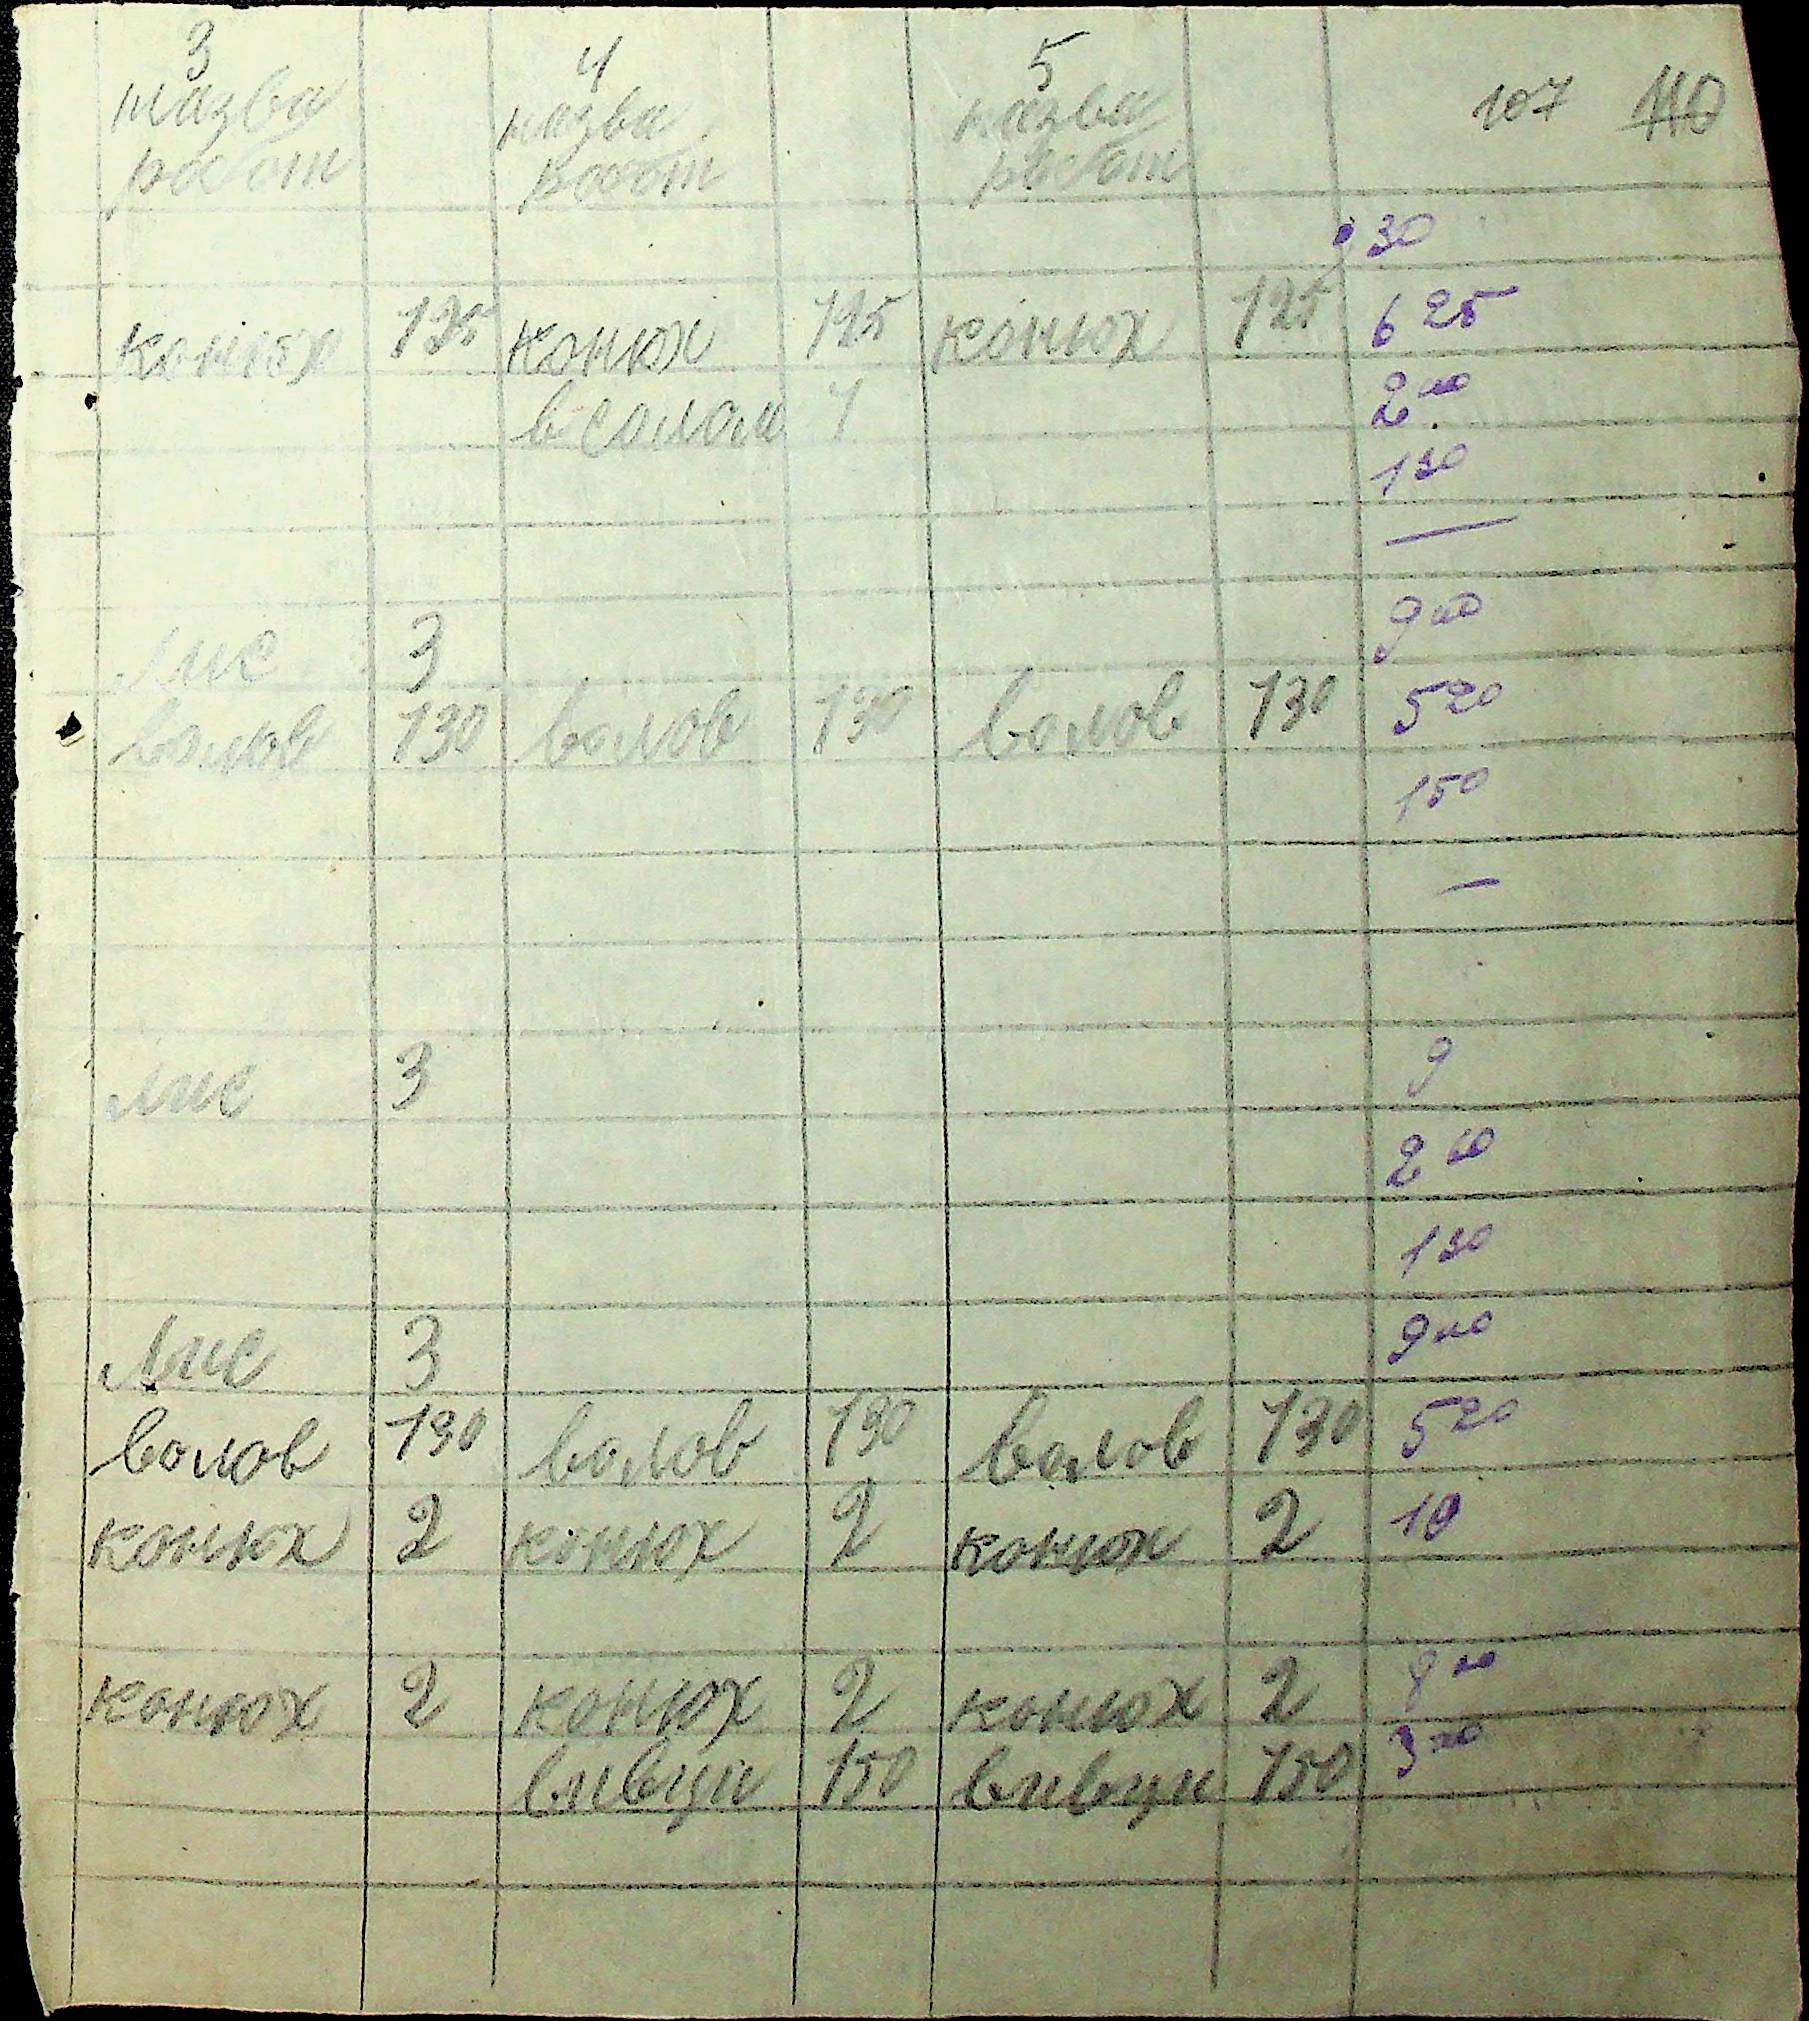 3 4 5
назва назва назва 107 110
работ работ работ
30
конюх 125 конюх 125 конюх 125 6 25
в солом 1 2 00
1 30
—
лис 3 9 00
волов 130 волов 130 волов 130 5 20
1 50
—
лис 3 9
2 60
1 30
лис 3 9 00
волов 130 волов 130 волов 130 5 20
конюх 2 конюх 2 конюх 2 10
конюх 2 конюх 2 конюх 2 8 00
вивци 150 вивци 150 3 00